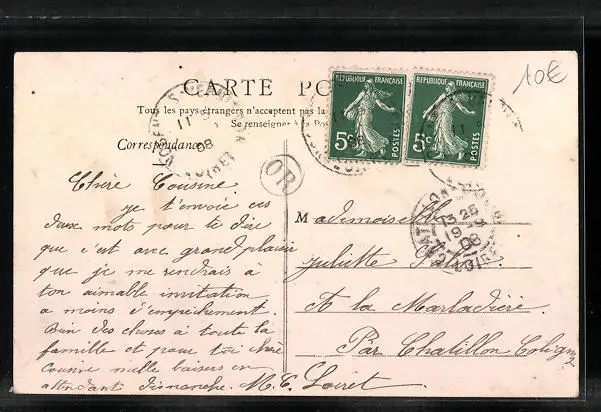 10€
CARTE PO
Tous les pays étrangers n'acceptent pas la
Se renseigner à la Po
Correspondance
REPUBLIQUE FRANÇAISE
5c
POSTES
REPUBLIQUE FRANÇAISE
5c
POSTES
11
08
LOIRET
OR
13 25
19
08
LOIRET
Chère Cousine
je t'envoie ces
deux mots pour te dire
que c'est avec grand plaisir
que je me rendrais à
ton aimable invitation
a moins d'empêchement.
Bien des choses à toute la
famille et pour toi chère
cousine mille baisers en
attendant dimanche. M. C.
Mademoiselle
Juliette
A la Marladière
Par Chatillon Coligny
Loiret